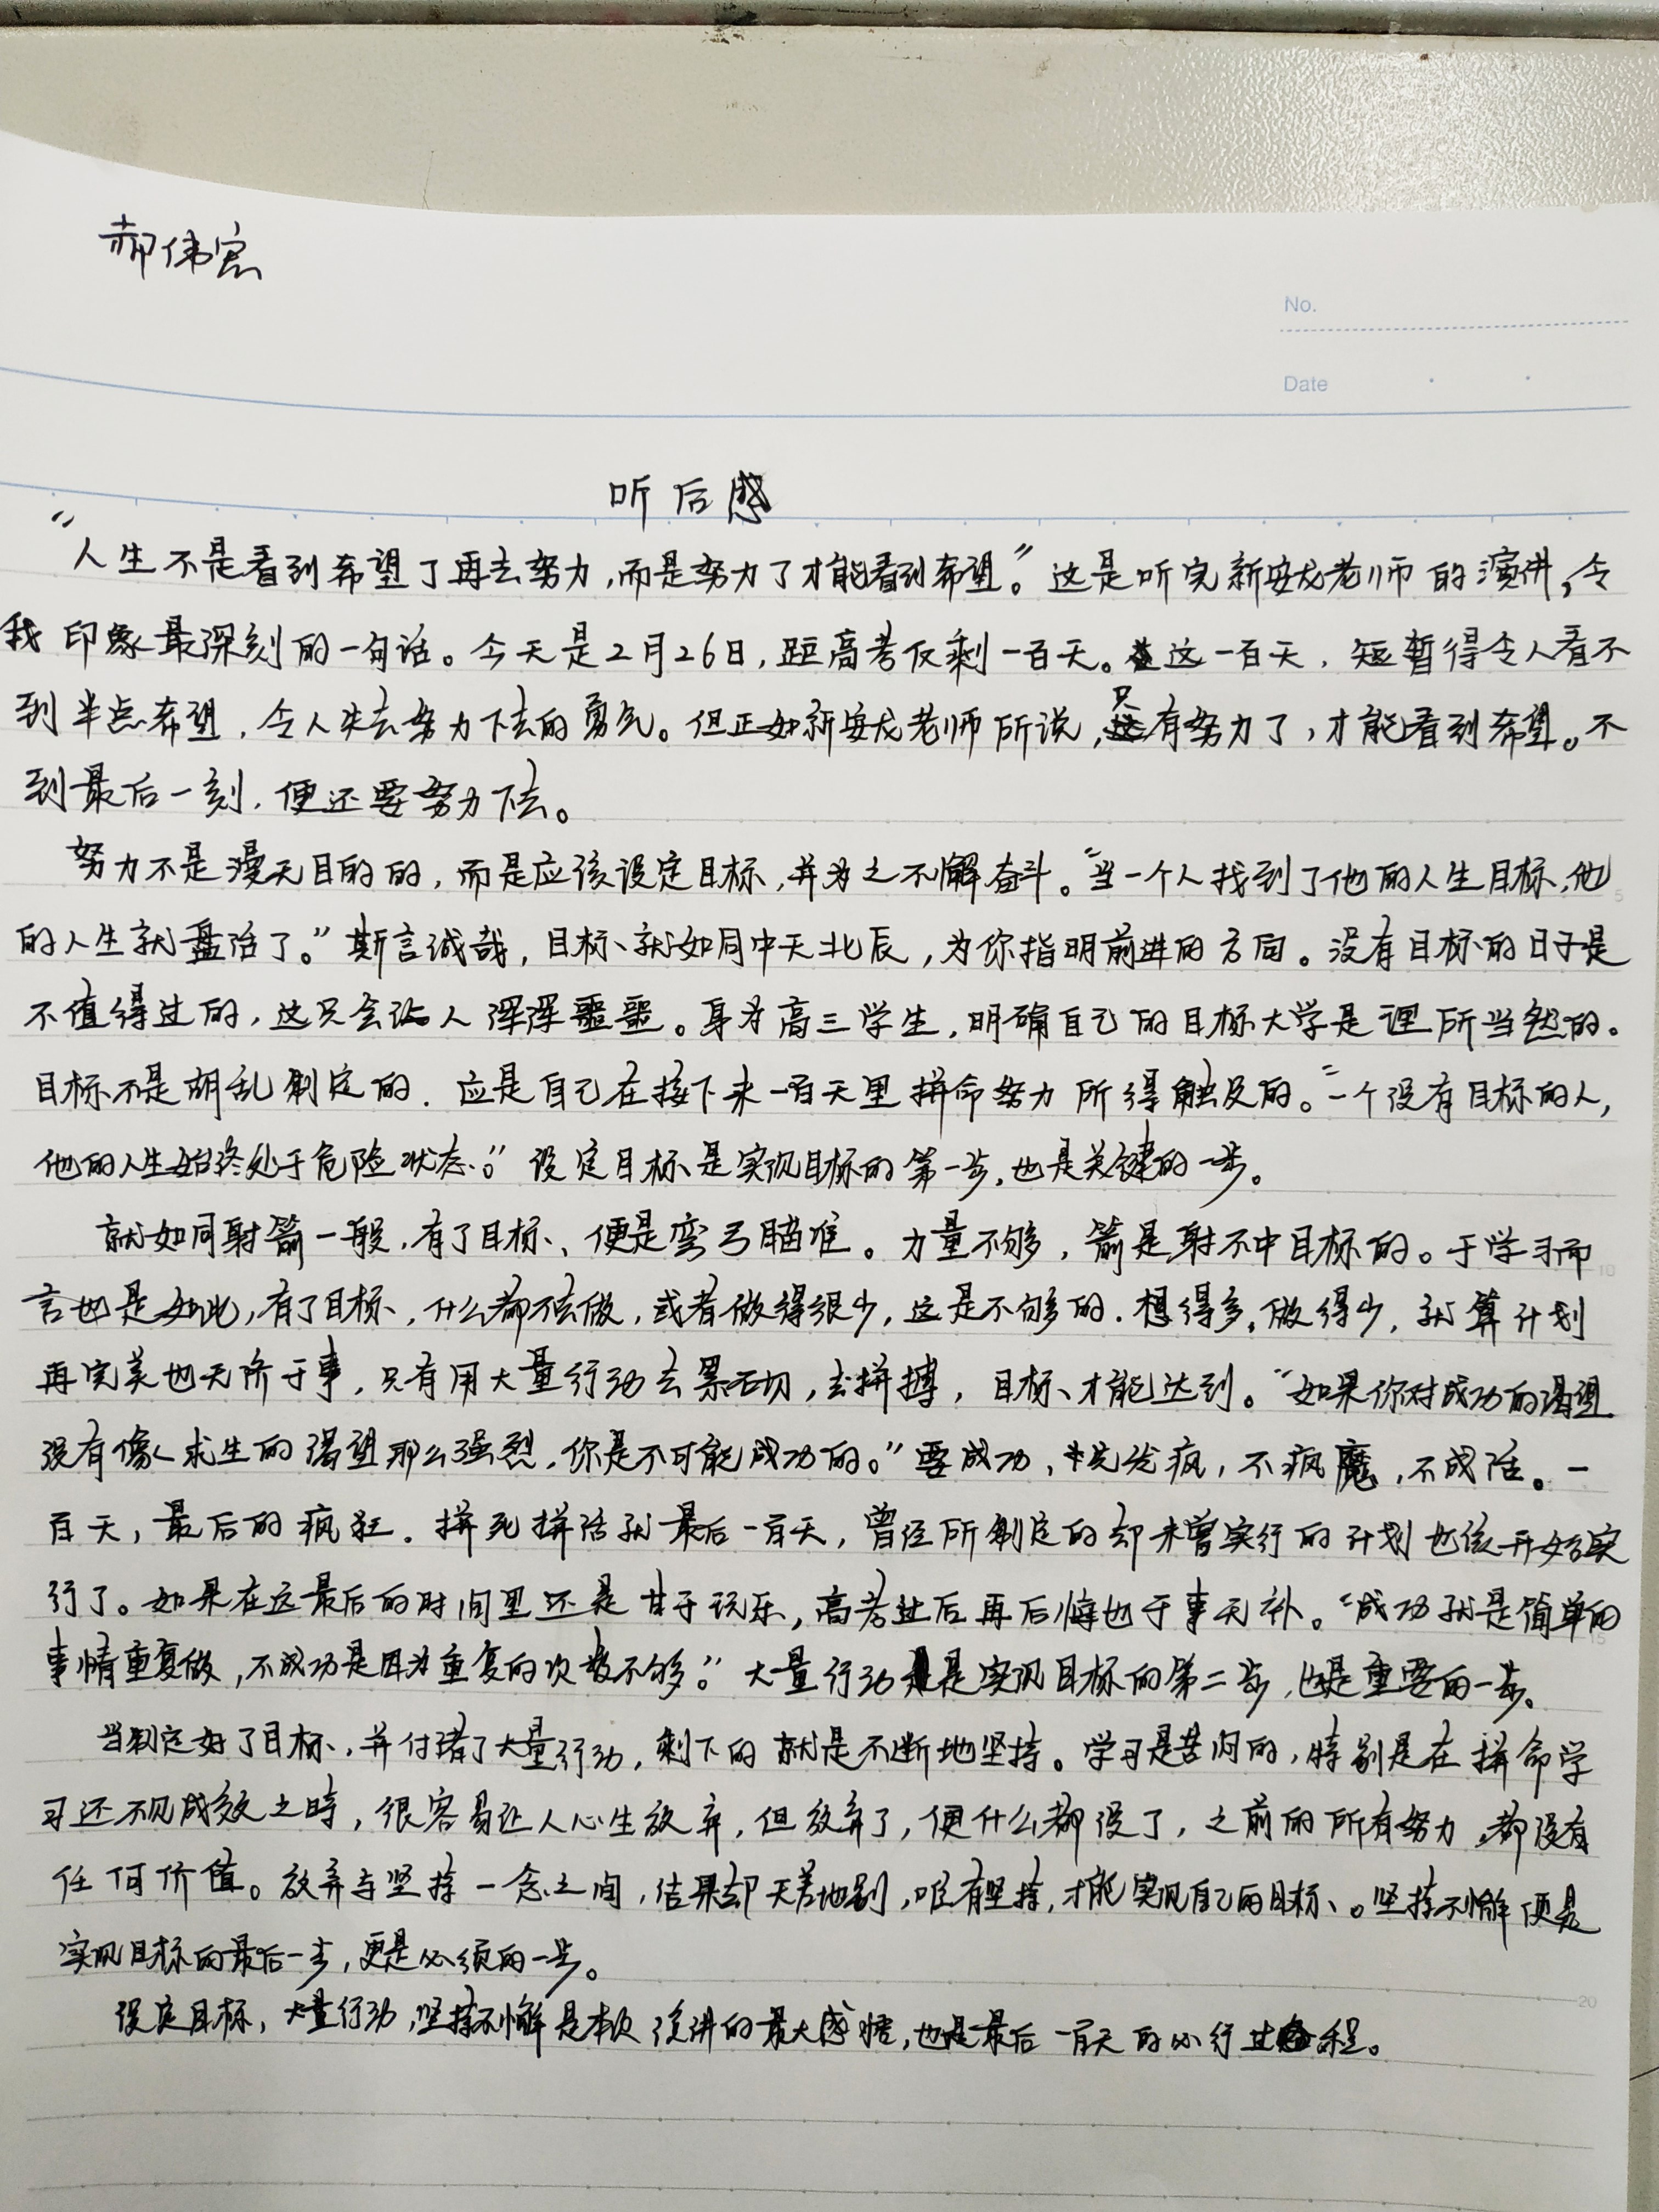 郝伟宏
No.
Date
听后感
“人生不是看到希望了再去努力,而是努力了才能看到希望。”这是听完靳安龙老师的演讲,令
我印象最深刻的一句话。今天是2月26日,距高考仅剩一百天。这一百天,短暂得令人看不
到半点希望,令人失去努力下去的勇气。但正如靳安龙老师所说,只有努力了,才能看到希望。不
到最后一刻,便还要努力下去。
努力不是漫无目的的,而是应该设定目标,并为之不懈奋斗。“当一个人找到了他的人生目标,他
的人生就盘活了。”斯言诚哉,目标就如同中天北辰,为你指明前进的方向。没有目标的日子是
不值得过的,这只会让人浑浑噩噩。身为高三学生,明确自己的目标大学是理所当然的。
目标不是胡乱制定的,应是自己在接下来一百天里拼命努力所得触及的。“一个没有目标的人,
他的人生始终处于危险状态。”设定目标是实现目标的第一步,也是关键的一步。
就如同射箭一般,有了目标,便是弯弓瞄准。力量不够,箭是射不中目标的。于学习而
言也是如此,有了目标,什么都不去做,或者做得很少,这是不够的。想得多,做得少,就算计划
再完美也无济于事,只有用大量行动去累积,去拼搏,目标才能达到。“如果你对成功的渴望
没有像人求生的渴望那么强烈,你是不可能成功的。”要成功,先发疯,不疯魔,不成活。一
百天,最后的疯狂。拼死拼活就最后一百天,曾经所制定的却未曾实行的计划也该开始实
行了。如果在这最后的时间里还是甘于玩乐,高考过后再后悔也于事无补。“成功就是简单的
事情重复做,不成功是因为重复的次数不够。”大量行动是实现目标的第二步,也是重要的一步。
当制定好了目标,并付诸了大量行动,剩下的就是不断地坚持。学习是苦闷的,特别是在拼命学
习还不见成效之时,很容易让人心生放弃,但放弃了,便什么都没了,之前的所有努力,都没有
任何价值。放弃与坚持一念之间,结果却天差地别,唯有坚持,才能实现自己的目标。坚持不懈便是
实现目标的最后一步,更是必须的一步。
设定目标,大量行动,坚持不懈是本次演讲的最大感悟,也是最后一百天的必行过程。
5
10
15
20